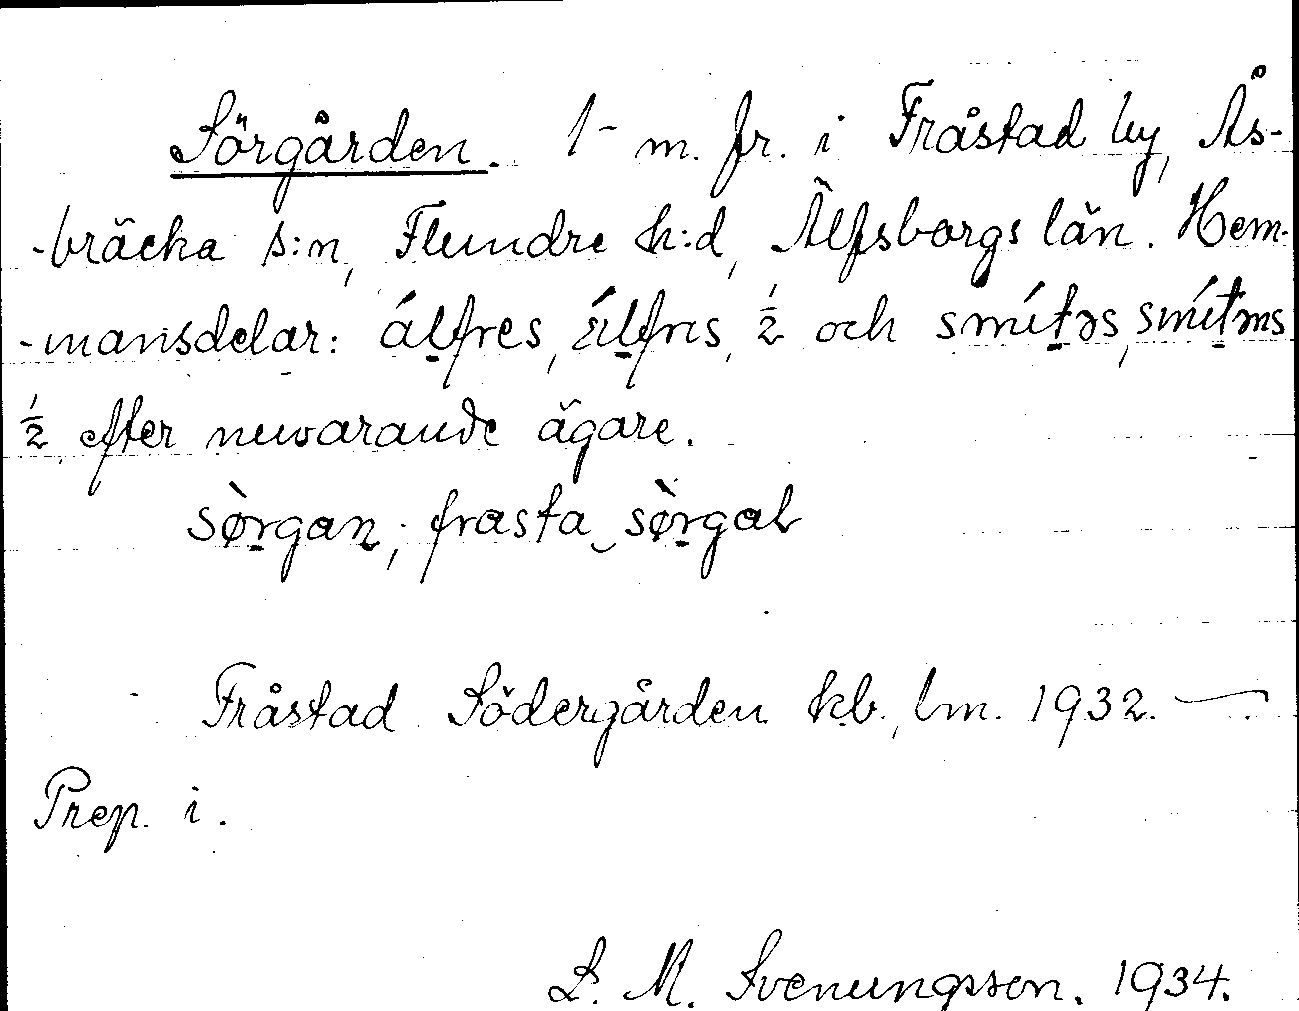 Sörgården. 1 m. fr. i Fråstad by, Ås-
-bräcka s:n, Flundre h:d, Älfsborgs län. Hem-
-mansdelar: álfres, álfrıs, ½ och smítəs, smítəns
½ efter nuvarande ägare.
sø̀rgan; frasta sø̀rgal
Fråstad Södergården kb., lm. 1932.
Prep. i.
S. M. Svenungsson. 1934.